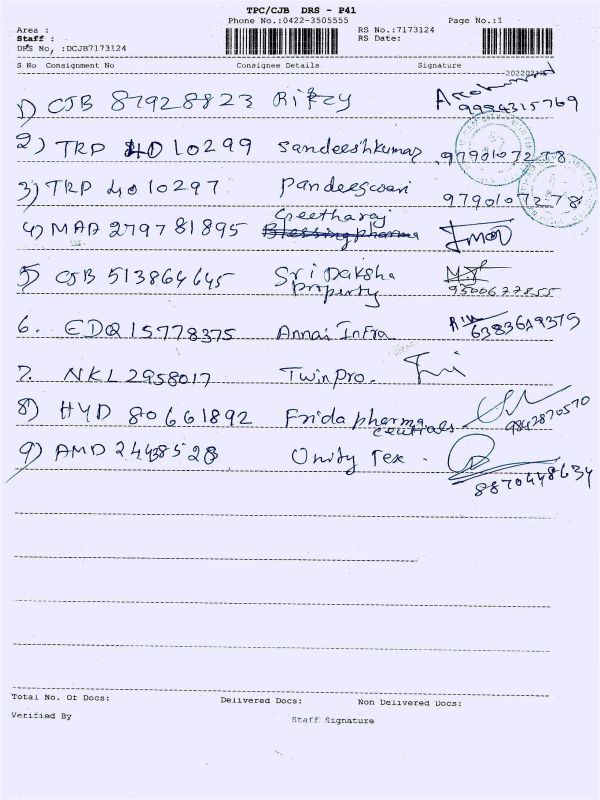 TPC/CJB DRS - P41
Phone No.:0422-3505555 Page No.:1
Area :
Staff :
DRS No, :DCJB7173124
RS No.:7173124
RS Date:
S No Consignment No Consignee Details Signature
1) CJB 87928823 Rifzy
9994315769
2) TRP 4010299 Sandeeshkumar 9790107278
3) TRP 4010297 Pandeeswari 9790107278
Geetharaj
4) MAA 279781895 Blessingpharma
5) CJB 513864645 Sri Daksha
Property 9500622855
6. EDQ 15778375 Annai Infra 6383619375
7. NKL 2958017 Twinpro.
8) HYD 80661892 Frida pharma
ceuticals 9842870570
9) AMD 24438528 Unity Tex.
8870448634
Total No. Of Docs: Delivered Docs: Non Delivered Docs:
Verified By Staff Signature